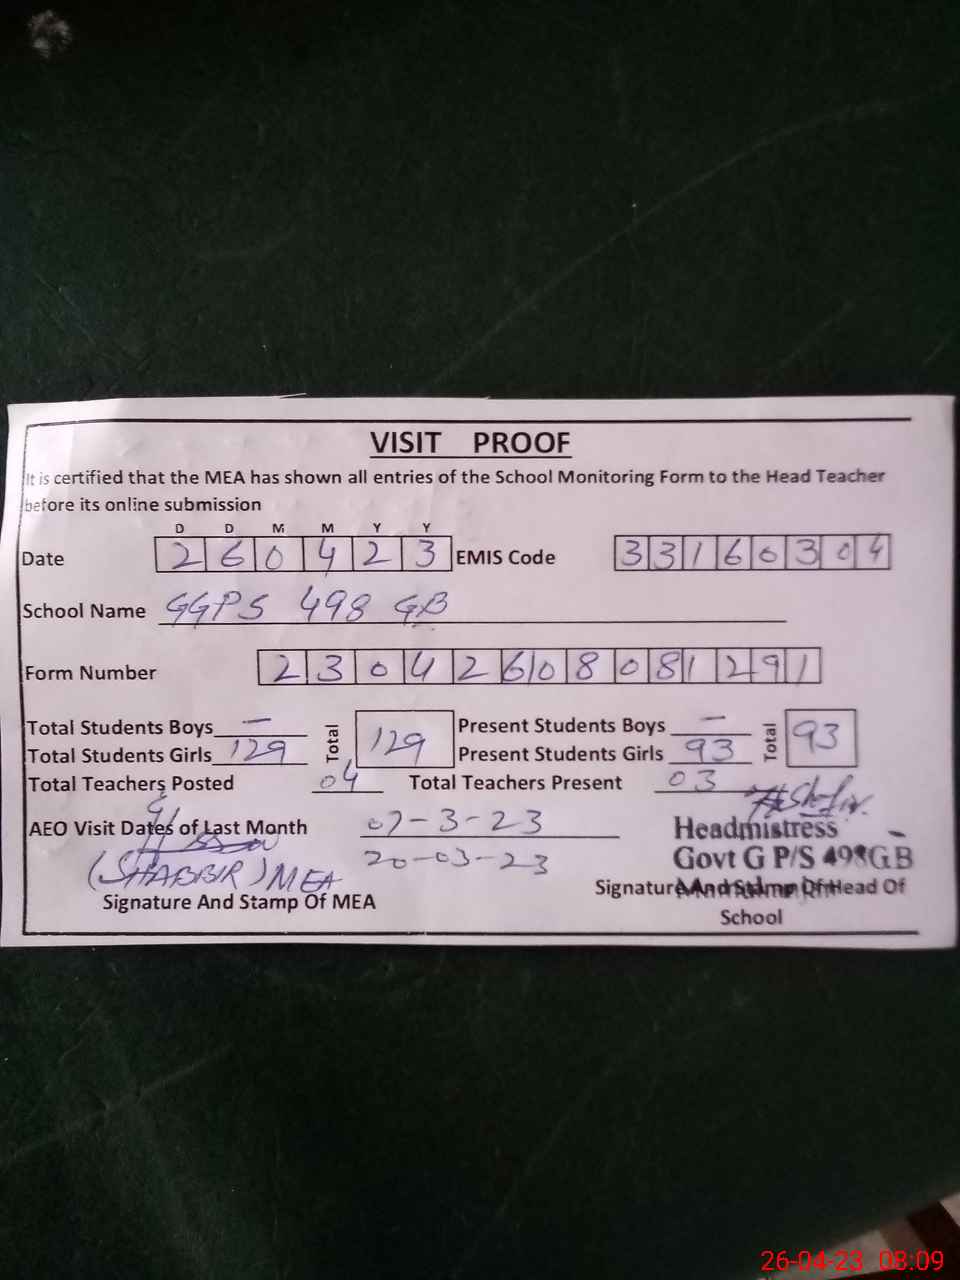 VISIT PROOF
It is certified that the MEA has shown all entries of the School Monitoring Form to the Head Teacher
before its online submission
D D M M Y Y
Date 260423 EMIS Code 33160304
School Name GGPS 498 GB
Form Number 23042608081291
Total Students Boys — Total 129 Present Students Boys — Total 93
Total Students Girls 129 Present Students Girls 93
Total Teachers Posted 04 Total Teachers Present 03
AEO Visit Dates of Last Month 07-3-23
20-03-23
(SHABBIR) MEA
Signature And Stamp Of MEA
Headmistress
Govt G P/S 498GB
Signature And Stamp Of Head Of
School
26-04-23 08:09